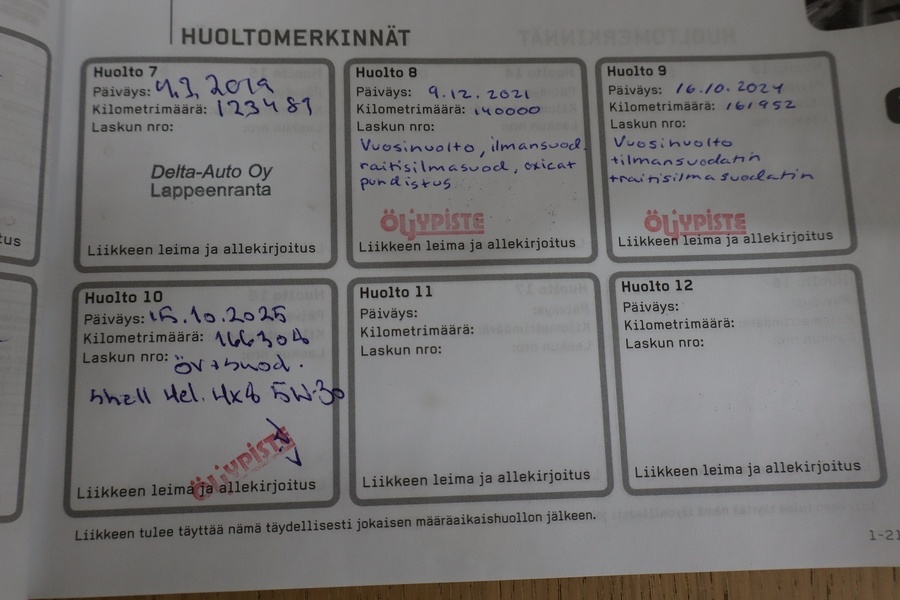 HUOLTOMERKINNÄT
Huolto 7
Päiväys: 4.3.2019
Kilometrimäärä: 123481
Laskun nro:
Delta-Auto Oy
Lappeenranta
Liikkeen leima ja allekirjoitus
Huolto 8
Päiväys: 9.12.2021
Kilometrimäärä: 140000
Laskun nro:
Vuosihuolto, ilmansuod.
raitisilmasuod, oxicat
puhdistus
ÖLJYPISTE
Liikkeen leima ja allekirjoitus
Huolto 9
Päiväys: 16.10.2024
Kilometrimäärä: 161952
Laskun nro:
Vuosihuolto
+ilmansuodatin
+raitisilmasuodatin
ÖLJYPISTE
Liikkeen leima ja allekirjoitus
Huolto 10
Päiväys: 15.10.2025
Kilometrimäärä: 166306
Laskun nro:
öv+suod.
Shell Hel. 5W-30
ÖLJYPISTE
Liikkeen leima ja allekirjoitus
Huolto 11
Päiväys:
Kilometrimäärä:
Laskun nro:
Liikkeen leima ja allekirjoitus
Huolto 12
Päiväys:
Kilometrimäärä:
Laskun nro:
Liikkeen leima ja allekirjoitus
Liikkeen tulee täyttää nämä täydellisesti jokaisen määräaikaishuollon jälkeen.
1-21